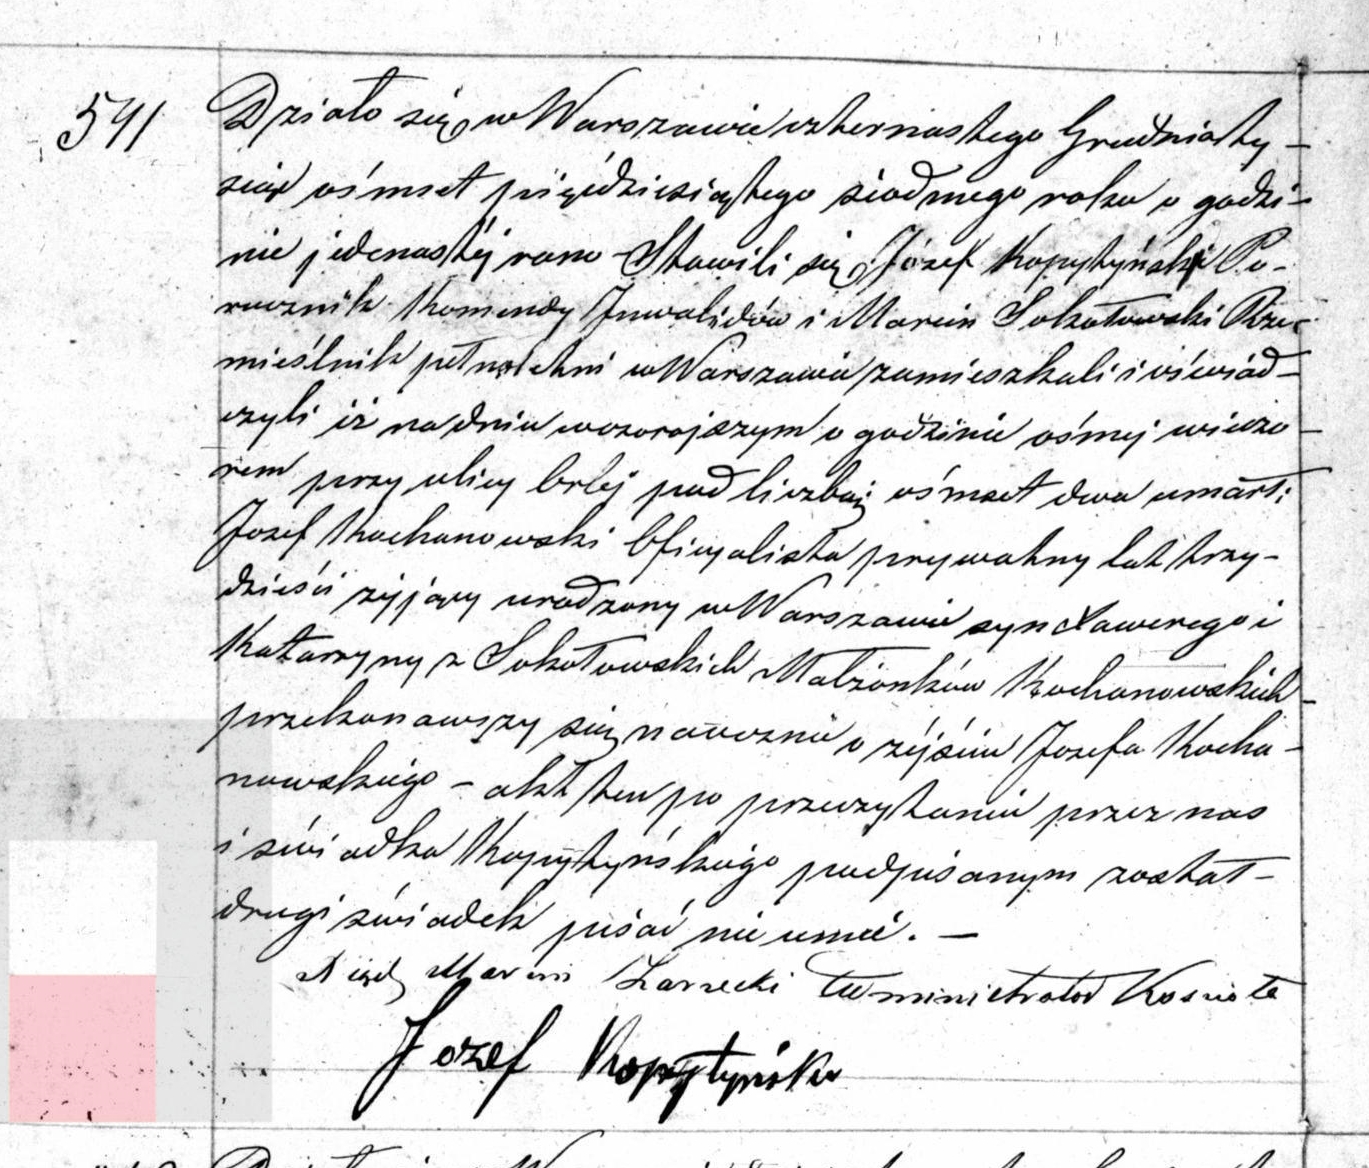 541
Działo się w Warszawie czternastego Grudnia ty-
siąc ośmset pięćdziesiątego siódmego roku o godzi-
nie jedenastéj rano Stawili się Józef Kopytyński Po-
rucznik Komendy Inwalidów i Marcin Sokołowski Rze-
mieślnik pełnoletni w Warszawie zamieszkali i oświad-
czyli iż na dniu wczorajszym o godzinie ósmej wieczo-
rem przy ulicy pod liczbą ośmset dwa umarł;
Jozef Kochanowski Oficyalista prywatny lat trzy-
dzieści żyjący urodzony w Warszawie syn Xawerego i
Katarzyny z Sokołowskich Małżonków Kochanowskich -
przekonawszy się naocznie o zéjściu Jozefa Kocha-
nowskiego - akt ten po przeczytaniu przez nas
i świadka Kopytyńskiego podpisanym został -
drugi świadek pisać nie umié. -
Xiądz Marcin Administrator Kościoła
Jozef Kopytyński